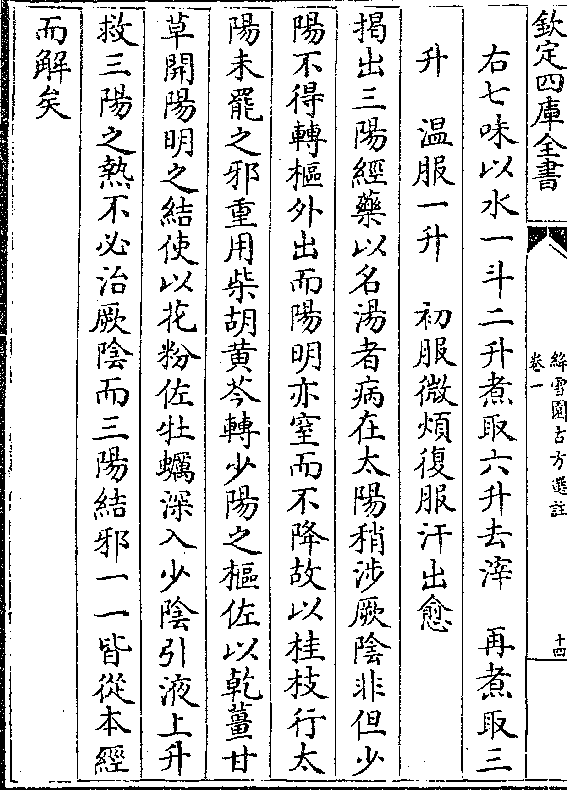 欽定四庫全書
絳雪園古方選註
卷一
十四
右七味以水一斗二升煮取六升去滓 再煮取三
升 温服一升 初服微煩復服汗出愈
揭出三陽經藥以名湯者病在太陽稍涉厥陰非但少
陽不得轉樞外出而陽明亦窒而不降故以桂枝行太
陽未罷之邪重用柴胡黄芩轉少陽之樞佐以乾薑甘
草開陽明之結使以花粉佐牡蠣深入少陰引液上升
救三陽之熱不必治厥陰而三陽結邪一一皆從本經
而解矣